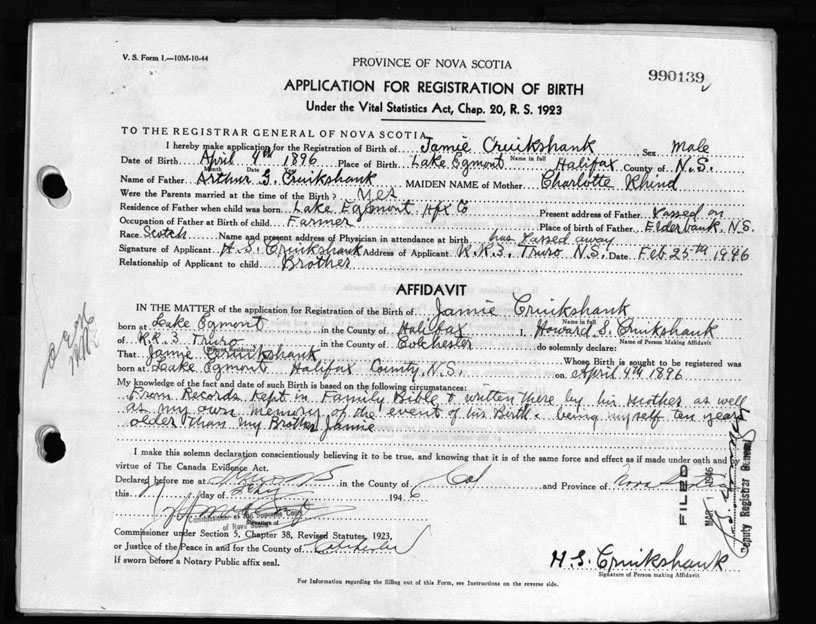 V. S. Form 1.—10M-10-44
PROVINCE OF NOVA SCOTIA
990139
APPLICATION FOR REGISTRATION OF BIRTH
Under the Vital Statistics Act, Chap. 20, R. S. 1923
TO THE REGISTRAR GENERAL OF NOVA SCOTIA
I hereby make application for the Registration of Birth of Jamie Cruikshank Sex Male
Name in full
Date of Birth April 4th 1896 Place of Birth Lake Egmont Halifax County of N.S.
Month Date
Name of Father Arthur G. Cruikshank MAIDEN NAME of Mother Charlotte Rhind
Were the Parents married at the time of the Birth? Yes
Residence of Father when child was born Lake Egmont Hfx Co Present address of Father Passed on
Occupation of Father at Birth of child Farmer Place of birth of Father Elderbank, N.S.
Race Scotch Name and present address of Physician in attendance at birth has Passed away
Signature of Applicant H. S. Cruikshank Address of Applicant R.R.3. Truro N.S. Date Feb 25th 1946
Relationship of Applicant to child Brother
AFFIDAVIT
IN THE MATTER of the application for Registration of the Birth of Jamie Cruikshank
Name in full
born at Lake Egmont in the County of Halifax I, Howard S. Cruikshank
Name of Person Making Affidavit
of R.R.3 Truro in the County of Colchester do solemnly declare:
Present Residence
That Jamie Cruikshank Whose Birth is sought to be registered was
born at Leake Egmont Halifax County, N.S. on April 4th 1896
My knowledge of the fact and date of such Birth is based on the following circumstances:
From Records Kept in Family Bible & written there by his Mother as well
as my own memory of the event of his Birth. being myself ten years
older than my Brother Jamie
I make this solemn declaration conscientiously believing it to be true, and knowing that it is of the same force and effect as if made under oath and in
virtue of The Canada Evidence Act.
Declared before me at Truro N S in the County of Col and Province of Nova Scotia
this day of Feby 1946
Commissioner of the Supreme Court
of Nova Scotia
Signature of
Commissioner under Section 5, Chapter 38, Revised Statutes, 1923,
or Justice of the Peace in and for the County of Colchester
If sworn before a Notary Public affix seal.
H. S. Cruikshank
Signature of Person making Affidavit
For Information regarding the filling out of this Form, see Instructions on the reverse side.
FILED
MAR 1 1946
Deputy Registrar General